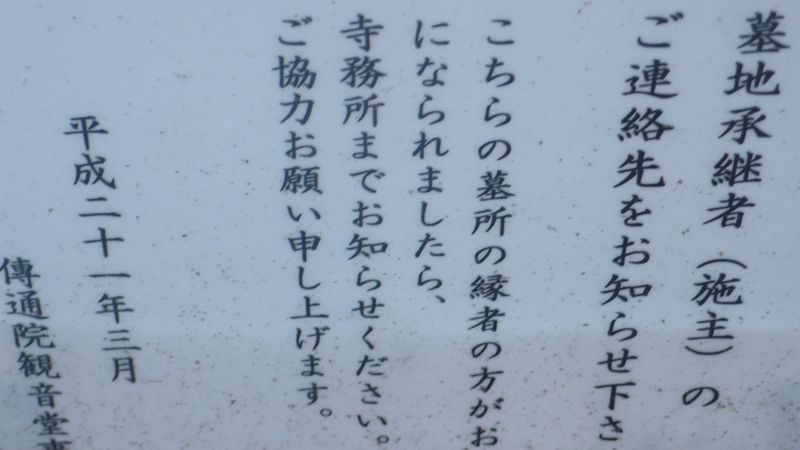 墓地承継者（施主）の
ご連絡先をお知らせ下さ
こちらの墓所の縁者の方がお
になられましたら、
寺務所までお知らせください。
ご協力お願い申し上げます。
平成二十一年三月
傳通院観音堂